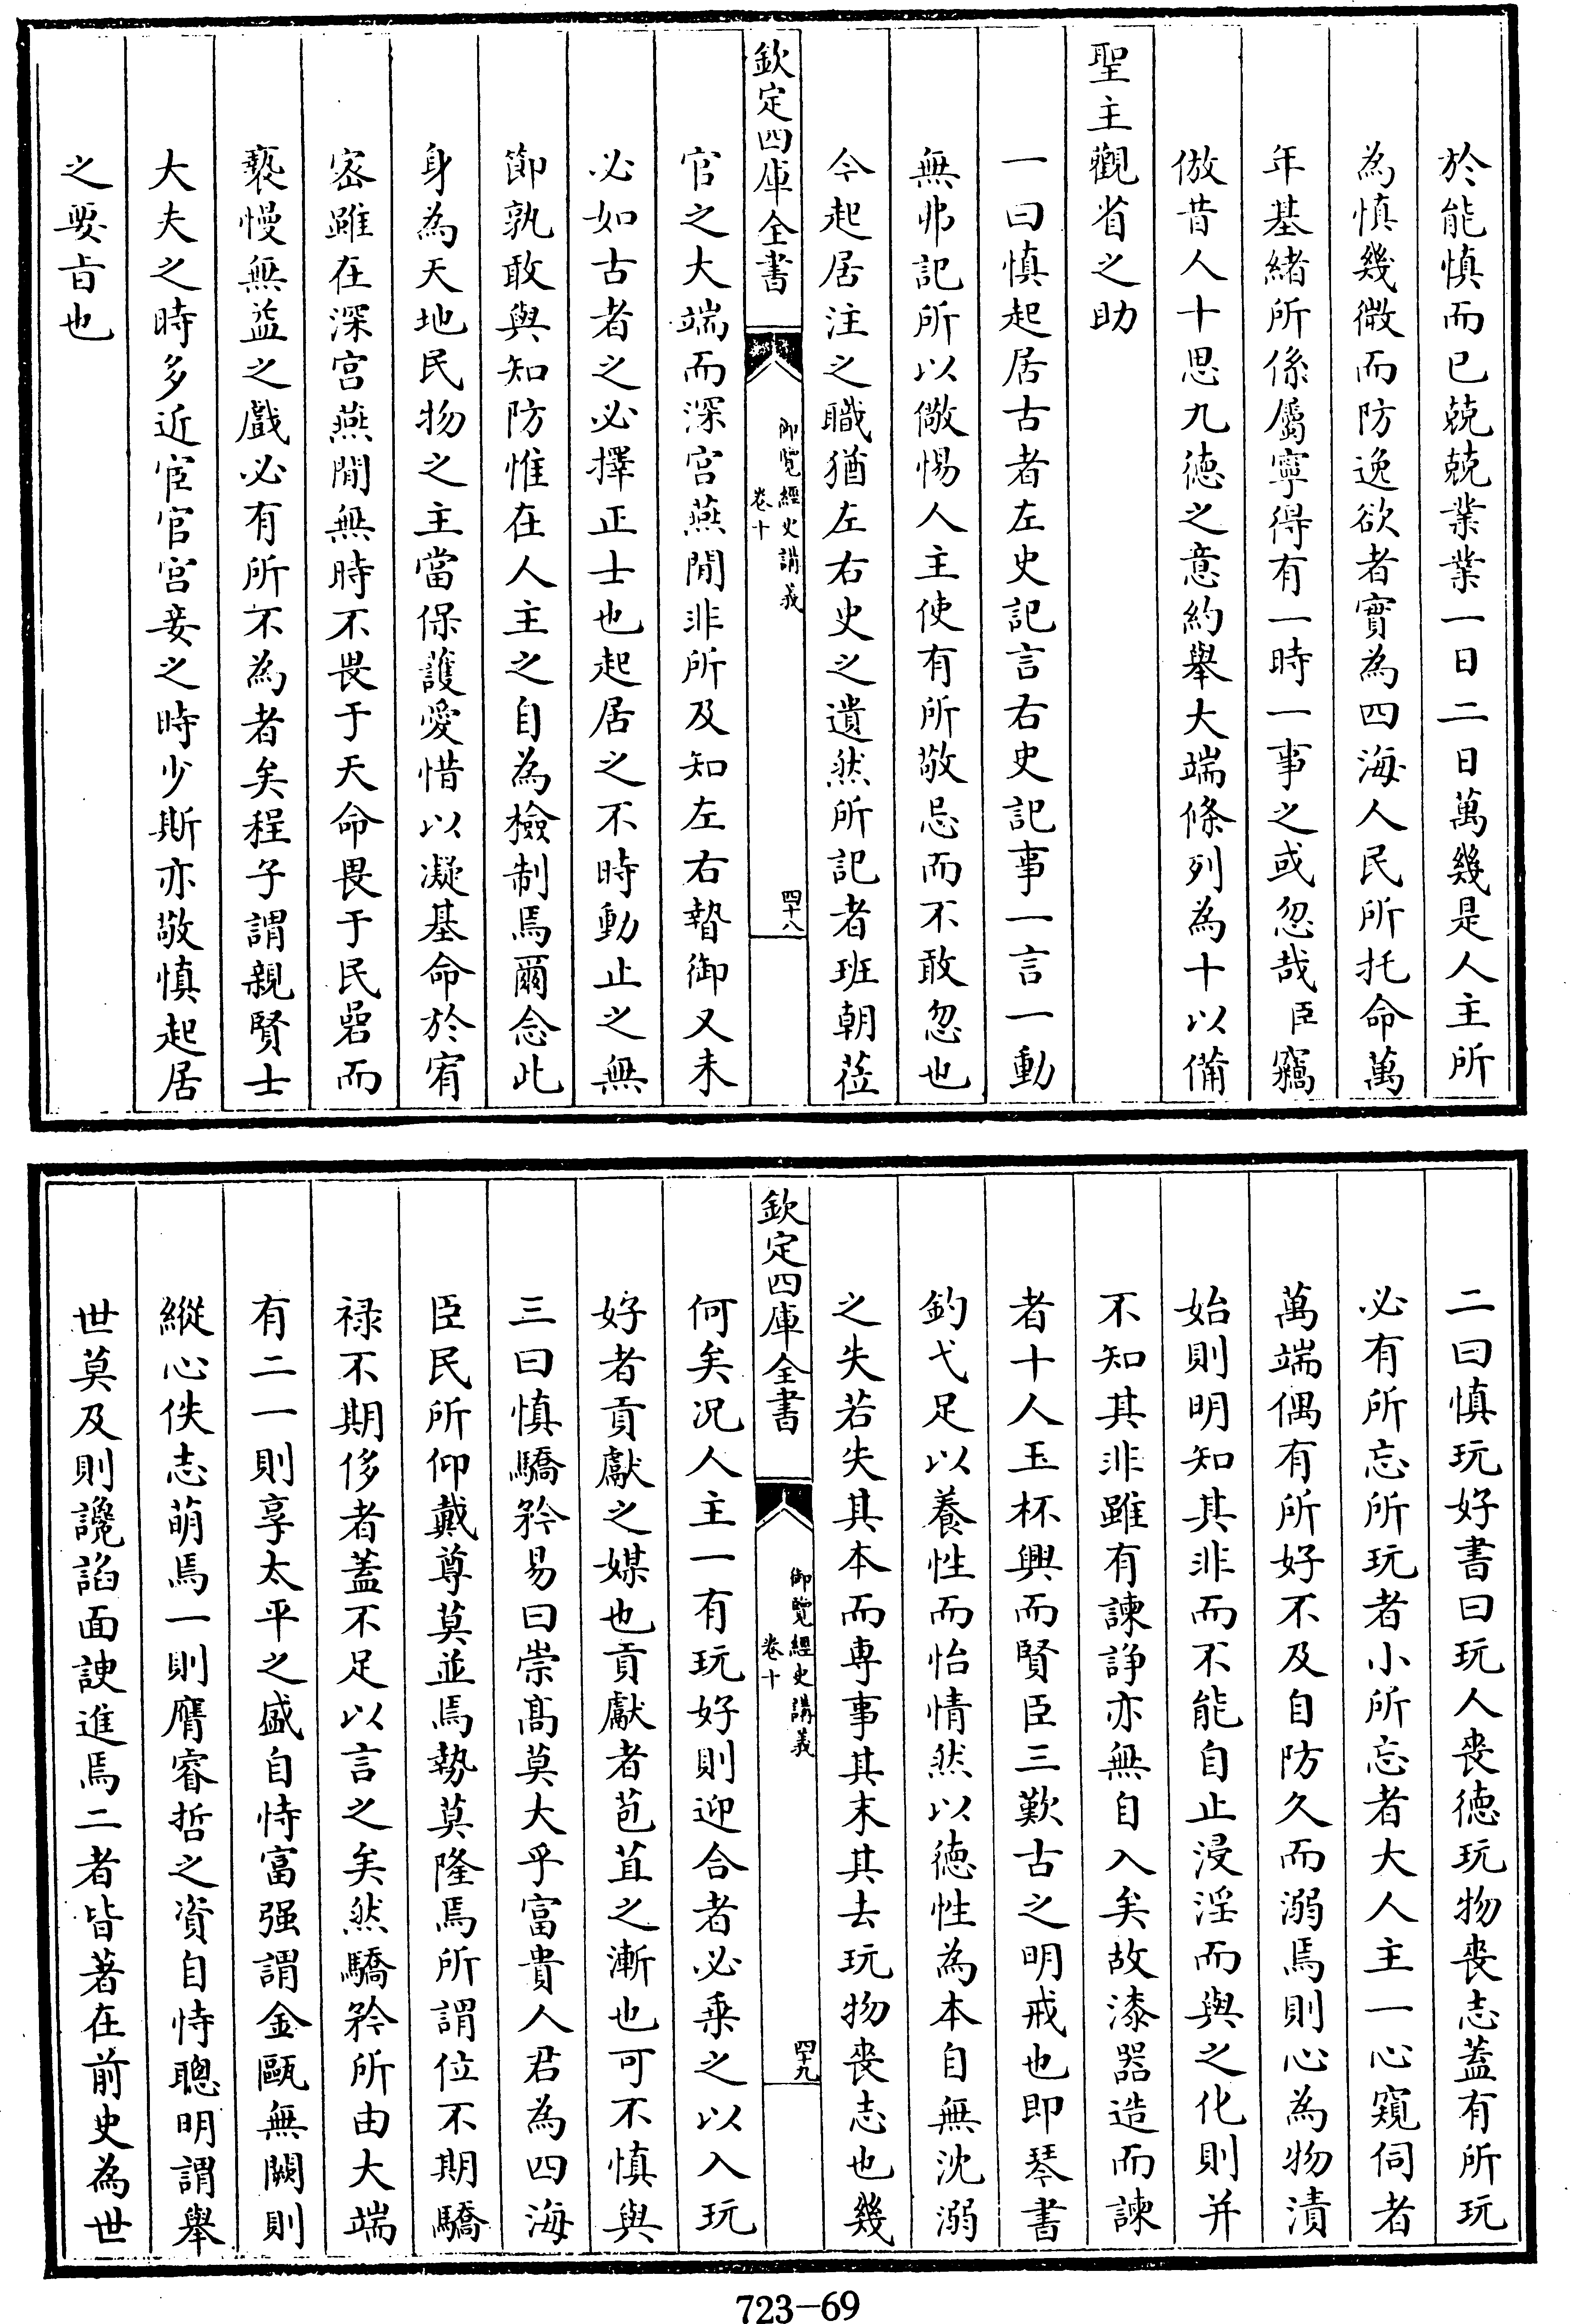 於能慎而已兢兢業業一日二日萬幾是人主所
為慎幾微而防逸欲者實為四海人民所托命萬
年基緒所係屬寧得有一時一事之或忽哉臣竊
倣昔人十思九徳之意約舉大端條列為十以備
聖主觀省之助
一曰慎起居古者左史記言右史記事一言一動
無弗記所以儆惕人主使有所敬忌而不敢忽也
今起居注之職猶左右史之遺然所記者班朝蒞
欽定四庫全書
御覽經史講義
卷十
四十八
官之大端而深宫燕閒非所及知左右暬御又未
必如古者之必擇正士也起居之不時動止之無
節孰敢與知防惟在人主之自為檢制焉爾念此
身為天地民物之主當保護愛惜以凝基命於宥
密雖在深宫燕閒無時不畏于天命畏于民碞而
褻慢無益之戲必有所不為者矣程子謂親賢士
大夫之時多近宦官宫妾之時少斯亦敬慎起居
之要旨也
二曰慎玩好書曰玩人喪徳玩物喪志蓋有所玩
必有所忘所玩者小所忘者大人主一心窺伺者
萬端偶有所好不及自防久而溺焉則心為物漬
始則明知其非而不能自止浸淫而與之化則并
不知其非雖有諫諍亦無自入矣故漆器造而諫
者十人玉杯興而賢臣三歎古之明戒也即琴書
釣弋足以養性而怡情然以徳性為本自無沈溺
之失若失其本而専事其末其去玩物喪志也幾
欽定四庫全書
御覽經史講義
卷十
四十九
何矣况人主一有玩好則迎合者必乗之以入玩
好者貢獻之媒也貢獻者苞苴之漸也可不慎與
三曰慎驕矜易曰崇髙莫大乎富貴人君為四海
臣民所仰戴尊莫並焉勢莫隆焉所謂位不期驕
禄不期侈者蓋不足以言之矣然驕矜所由大端
有二一則享太平之盛自恃富强謂金甌無闕則
縱心佚志萌焉一則膺睿哲之資自恃聰明謂舉
世莫及則讒諂面諛進焉二者皆著在前史為世
723-69